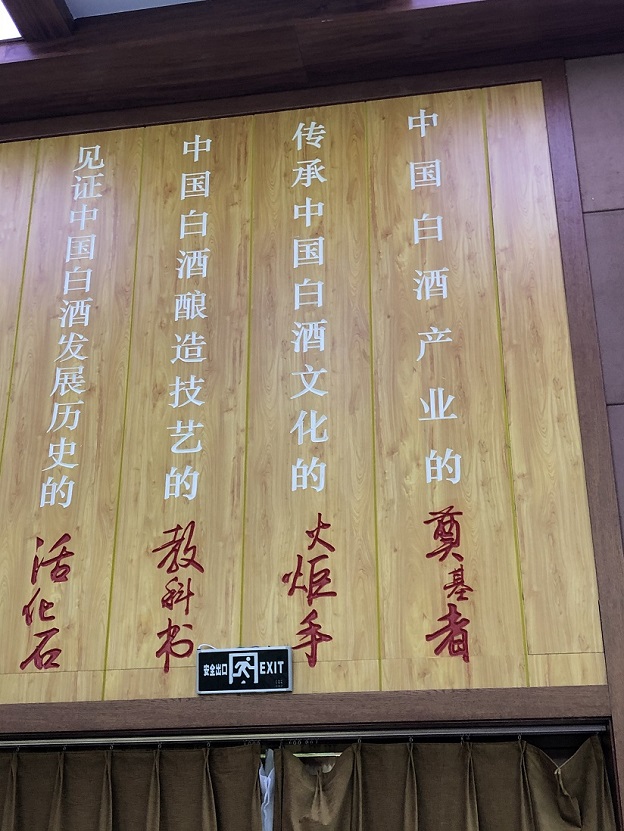 中国白酒产业的奠基者
传承中国白酒文化的火炬手
中国白酒酿造技艺的教科书
见证中国白酒发展历史的活化石
安全出口 EXIT